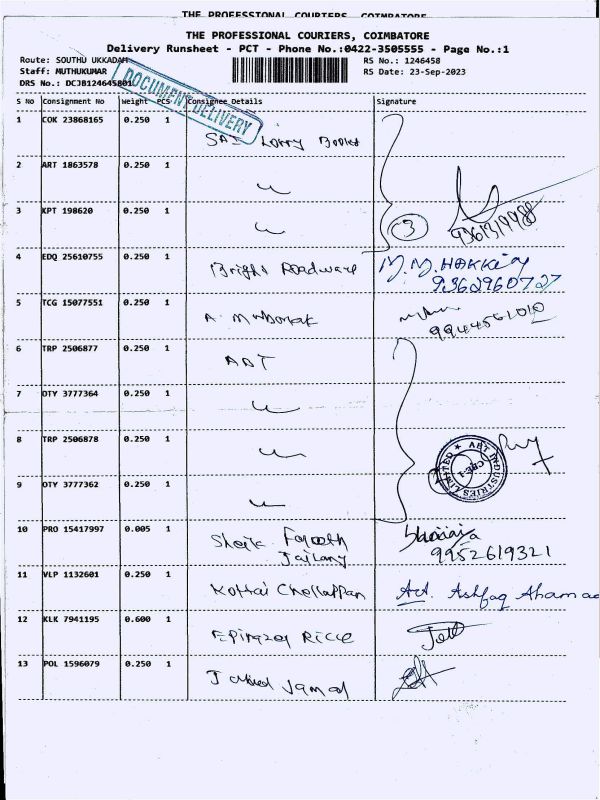 THE PROFESSIONAL COURIERS, COIMBATORE
THE PROFESSIONAL COURIERS, COIMBATORE
Delivery Runsheet - PCT - Phone No.:0422-3505555 - Page No.:1
Route: SOUTHU UKKADAM
RS No.: 1246458
Staff: MUTHUKUMAR
RS Date: 23-Sep-2023
DRS No.: DCJB124645801
DOCUMENT DELIVERY
S No Consignment No Weight PCS Consignee Details Signature
1 COK 23868165 0.250 1
SAI Lorry Booking
2 ART 1863578 0.250 1
3 KPT 198620 0.250 1
3
4 EDQ 25610755 0.250 1 Bright Roadware M.M.HAKKIM
9362960727
5 TCG 15077551 0.250 1 A. Mubarak
9944561010
6 TRP 2506877 0.250 1
ABT
7 OTY 3777364 0.250 1
8 TRP 2506878 0.250 1
ABT INDUSTRIES LIMITED ★ CBE-1
9 OTY 3777362 0.250 1
10 PRO 15417997 0.005 1 Sheik Farooth
Jailany
9952619321
11 VLP 1132601 0.250 1 Kottai Chellappan Act. Ashfaq Ahamad
12 KLK 7941195 0.600 1
Ricce
13 POL 1596079 0.250 1
Jamal